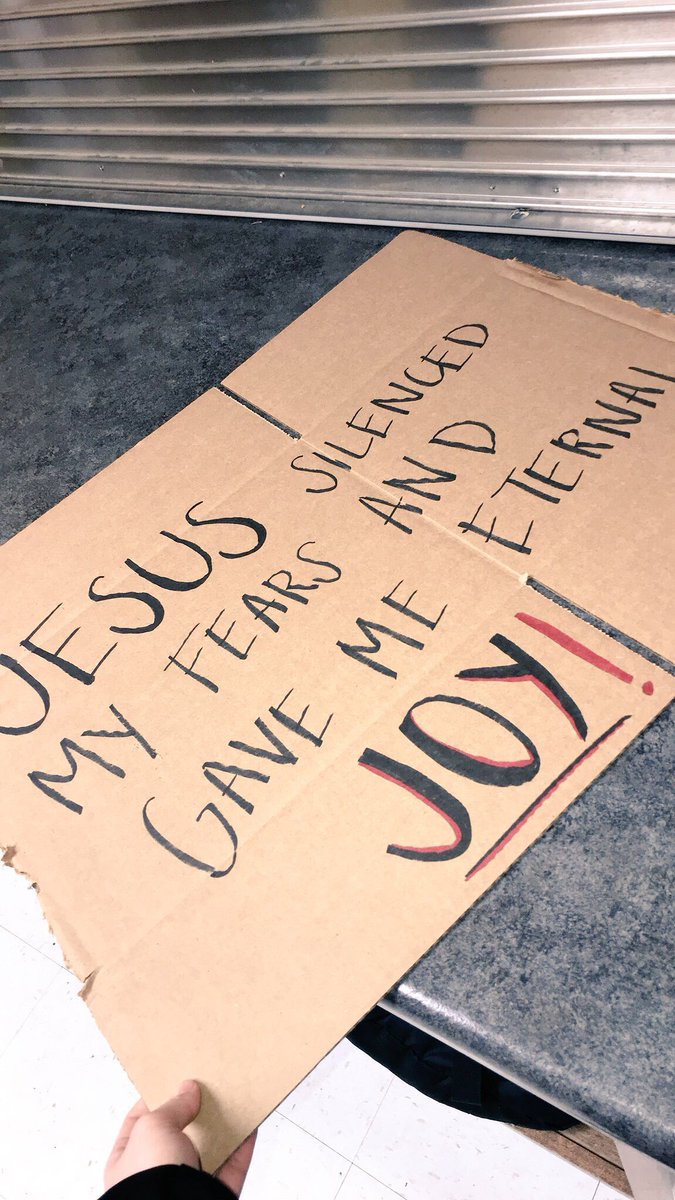 JESUS SILENCED
MY FEARS AND
GAVE ME ETERNAL
JOY!